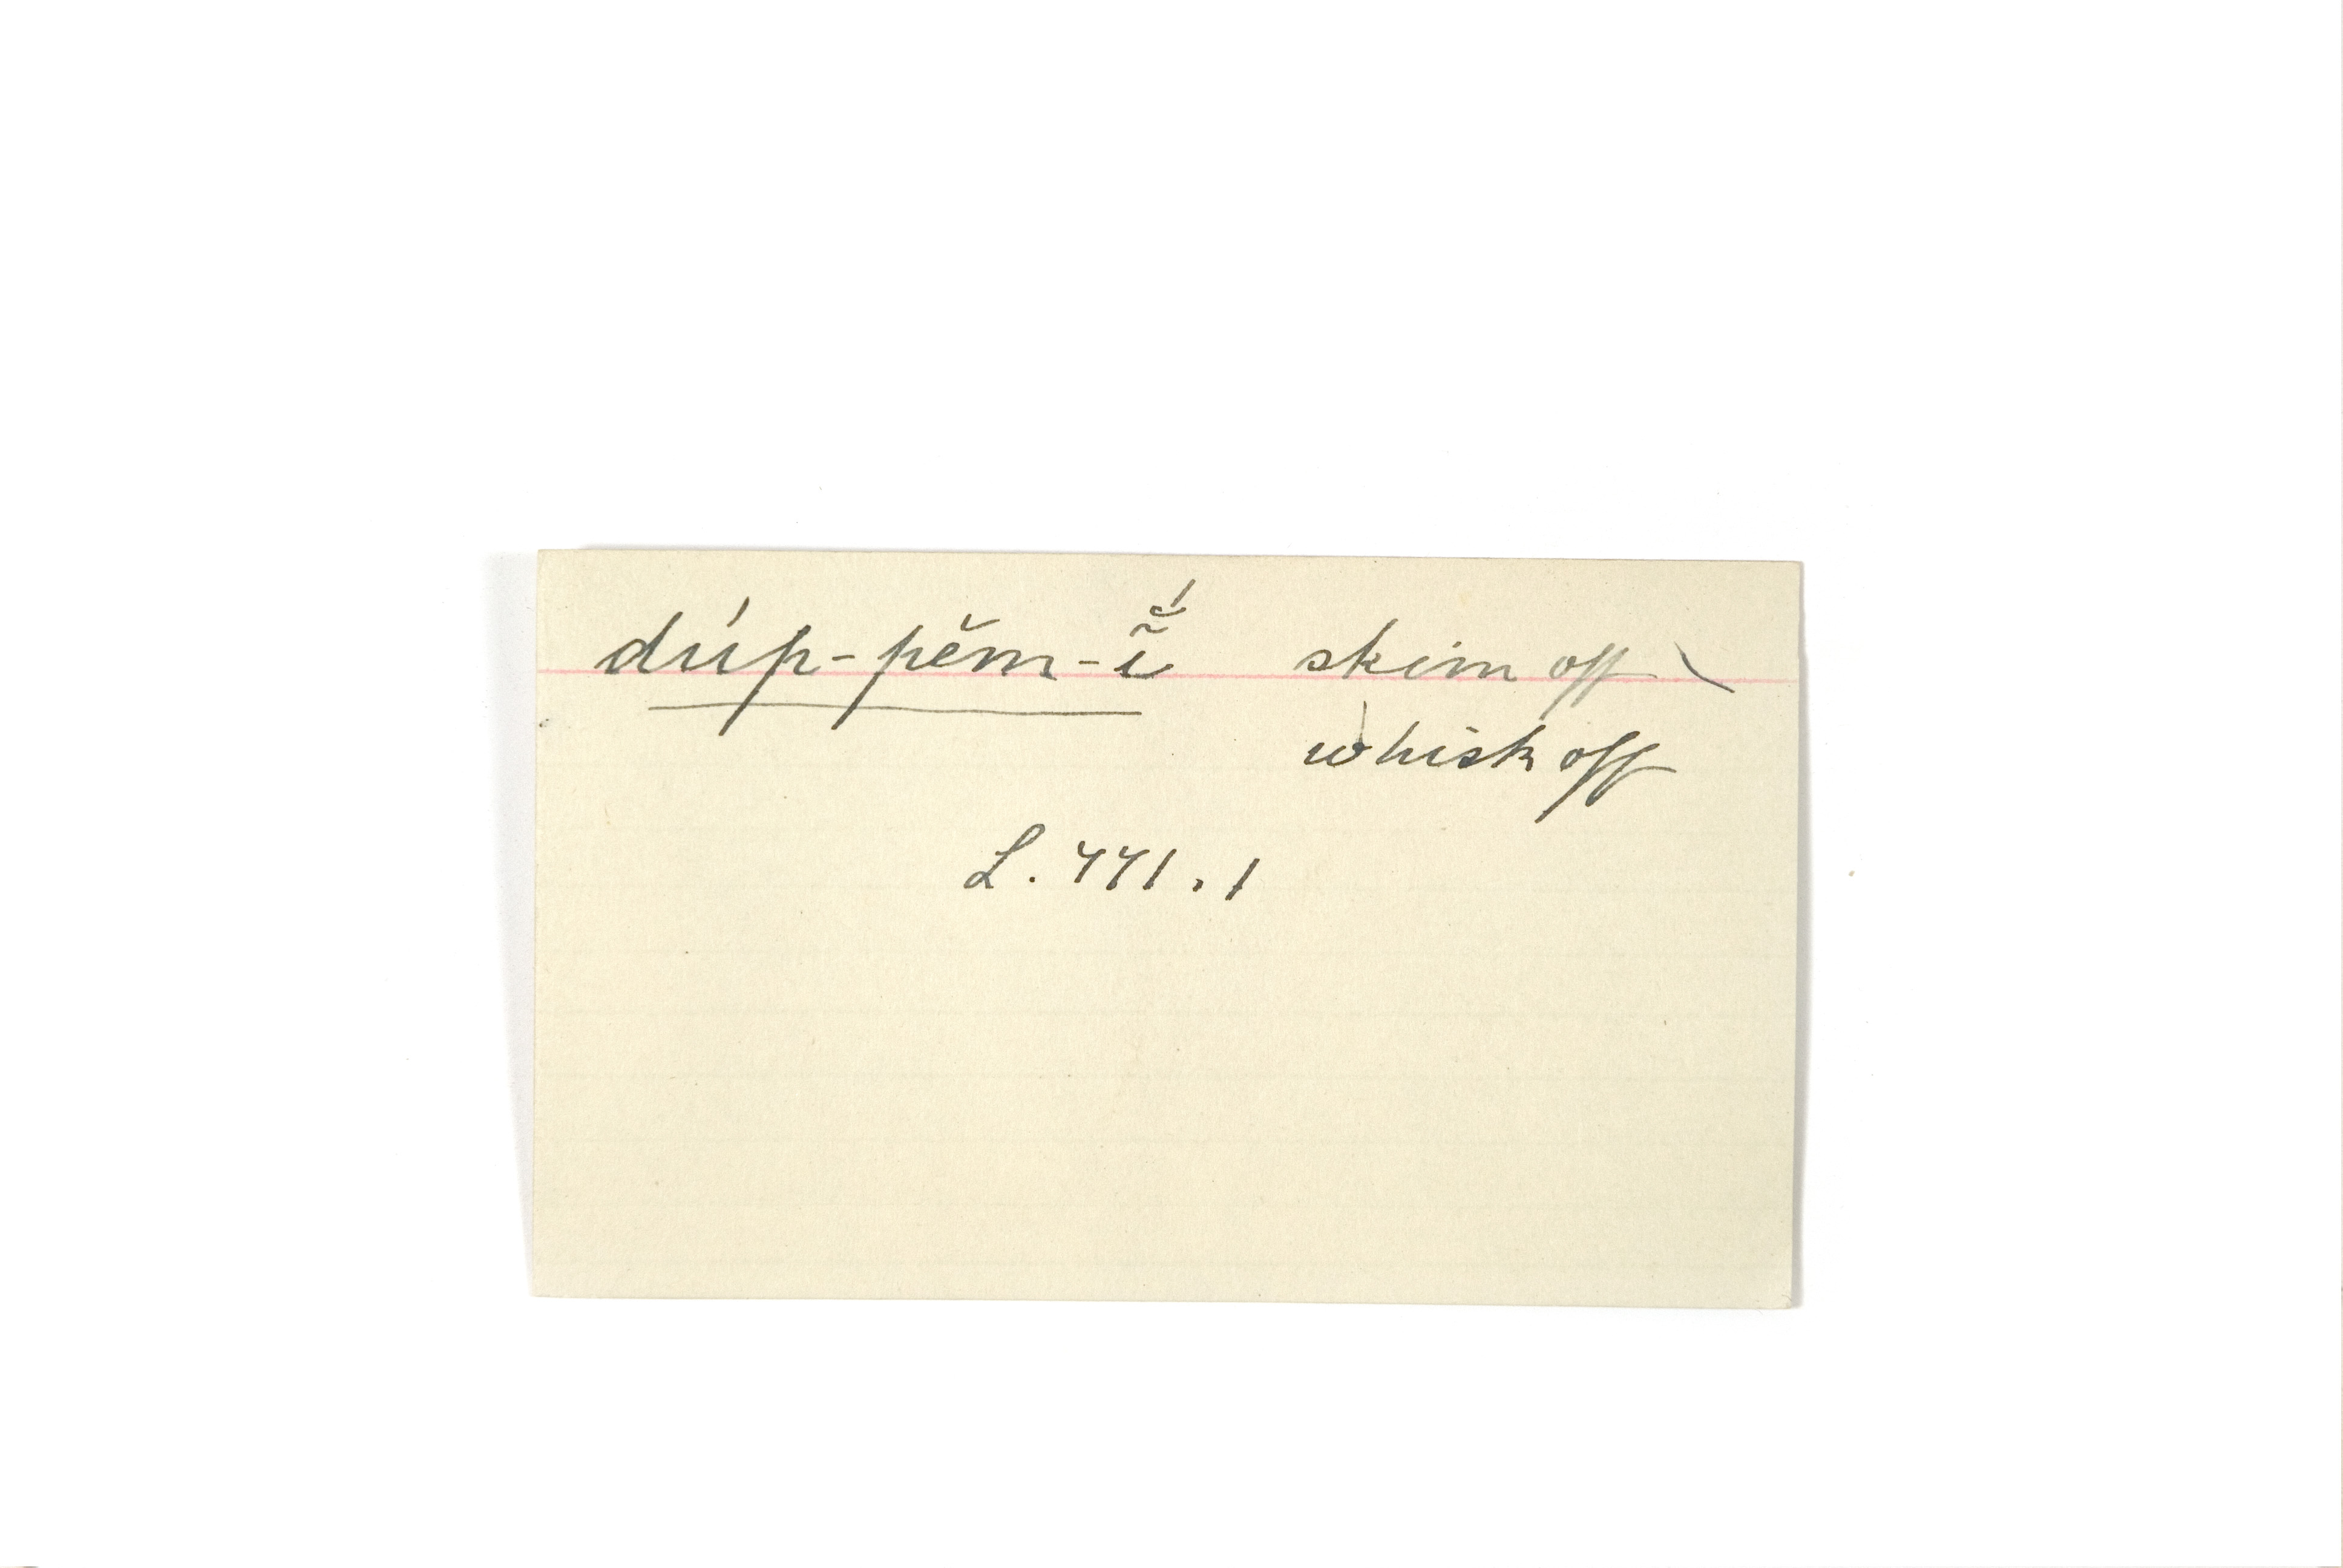 dúp-pĕm-ĭ̆́ skim off
whisk off
L. 441.1